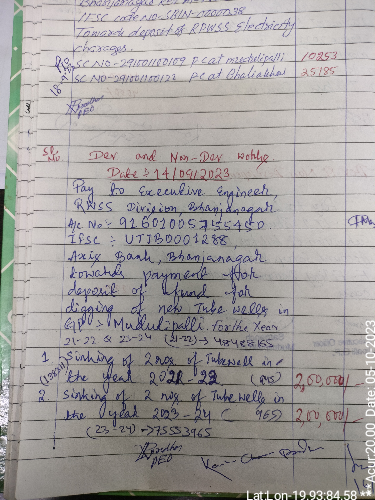 IFSC code NO-SBIN-0000038
Towards deposit of RPWSS Electricity
charges.
SC NO-291001100109 PC at mudulipalli 10253
SC NO-291001100122 PC at 25185
Sl.
No
Dev and Non-Dev
Date :- 14/09/2023
Pay to Executive Engineer,
RWSS Division, Bhanjanagar
A/c No:- 91601005755450.
IFSC :- UTIB0001288,
Axis Bank, Bhanjanagar
towards payment for
deposit of fund for
digging of new Tube wells in
GP :- Mudulipalli. for the Year
21-22 & 23-24 (21-22)→
1. Sinking of 2 nos of Tubewell in
the year 2021-22 2,00,000/-
2. Sinking of 2 nos of Tube wells in
the year 2023-24 2,00,000/-
(23-24)→75553965
PEO
Acur:20.00 Date:05-10-2023
Lat:Lon-19.93:84.58